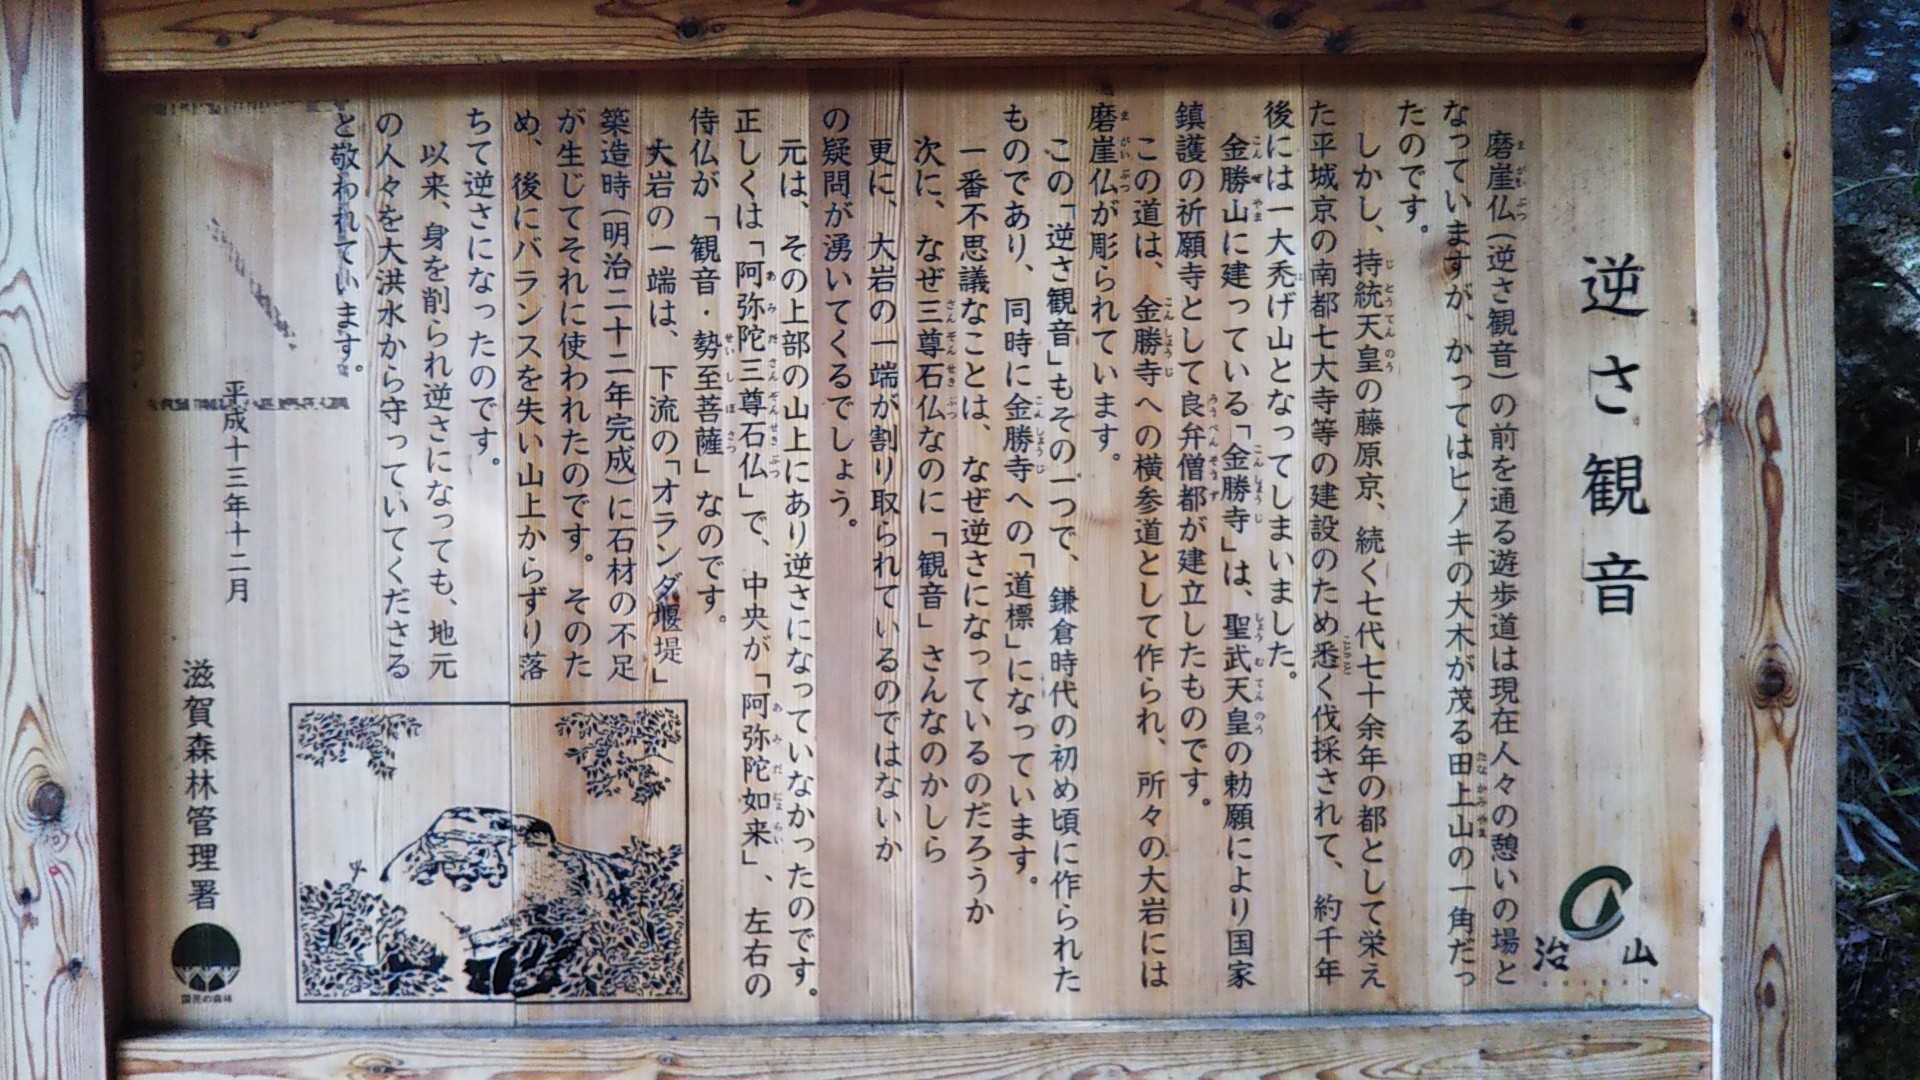 逆さ観音
治山
磨崖仏(逆さ観音)の前を通る遊歩道は現在人々の憩いの場と
なっていますが、かってはヒノキの大木が茂る田上山の一角だっ
たのです。
しかし、持統天皇の藤原京、続く七代七十余年の都として栄え
た平城京の南都七大寺等の建設のため悉く伐採されて、約千年
後には一大禿げ山となってしまいました。
金勝山に建っている「金勝寺」は、聖武天皇の勅願により国家
鎮護の祈願寺として良弁僧都が建立したものです。
この道は、金勝寺への横参道として作られ、所々の大岩には
磨崖仏が彫られています。
この「逆さ観音」もその一つで、鎌倉時代の初め頃に作られた
ものであり、同時に金勝寺への「道標」になっています。
一番不思議なことは、なぜ逆さになっているのだろうか
次に、なぜ三尊石仏なのに「観音」さんなのかしら
更に、大岩の一端が割り取られているのではないか
の疑問が湧いてくるでしょう。
元は、その上部の山上にあり逆さになっていなかったのです。
正しくは「阿弥陀三尊石仏」で、中央が「阿弥陀如来」、左右の
侍仏が「観音・勢至菩薩」なのです。
大岩の一端は、下流の「オランダ堰堤」
築造時(明治二十二年完成)に石材の不足
が生じてそれに使われたのです。そのた
め、後にバランスを失い山上からずり落
ちて逆さになったのです。
以来、身を削られ逆さになっても、地元
の人々を大洪水から守っていてくださる
と敬われています。
平成十三年十二月
滋賀森林管理署
国民の森林